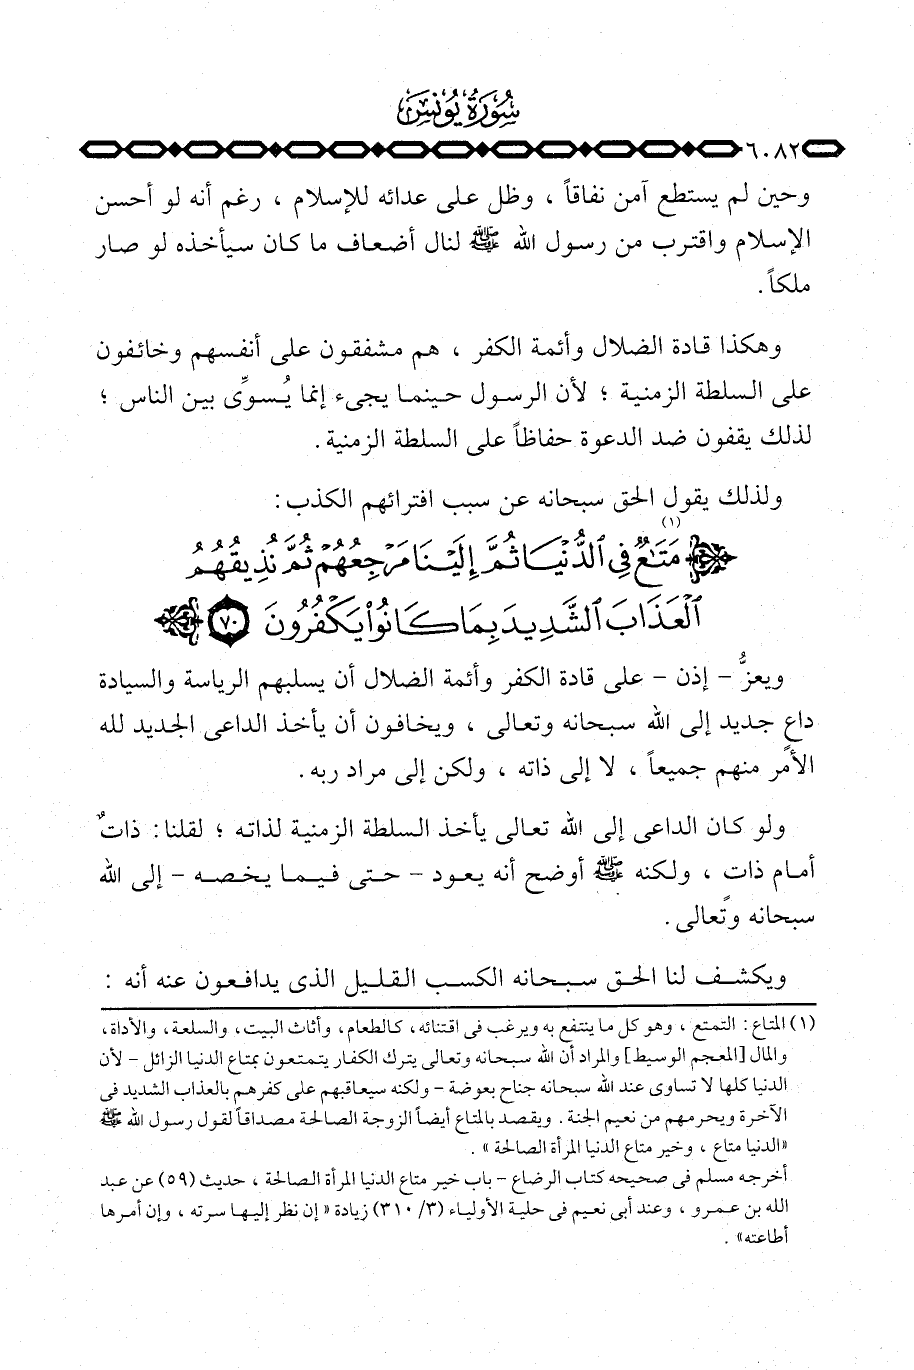 سُورَةُ يُونُسَ
٦٠٨٢
وحين لم يستطع آمن نفاقاً ، وظل على عدائه للإسلام ، رغم أنه لو أحسن
الإسلام واقترب من رسول الله ﷺ لنال أضعاف ما كان سيأخذه لو صار
ملكاً .
وهكذا قادة الضلال وأئمة الكفر ، هم مشفقون على أنفسهم وخائفون
على السلطة الزمنية ؛ لأن الرسول حينما يجىء إنما يُسوِّى بين الناس ؛
لذلك يقفون ضد الدعوة حفاظاً على السلطة الزمنية .
ولذلك يقول الحق سبحانه عن سبب افترائهم الكذب :
﴿ مَتَٰعٌ (١) فِى ٱلدُّنْيَا ثُمَّ إِلَيْنَا مَرْجِعُهُمْ ثُمَّ نُذِيقُهُمُ
ٱلْعَذَابَ ٱلشَّدِيدَ بِمَا كَانُوا۟ يَكْفُرُونَ ٧٠ ﴾
ويعزُّ - إذن - على قادة الكفر وأئمة الضلال أن يسلبهم الرياسة والسيادة
داعٍ جديد إلى الله سبحانه وتعالى ، ويخافون أن يأخذ الداعى الجديد لله
الأمر منهم جميعاً ، لا إلى ذاته ، ولكن إلى مراد ربه .
ولو كان الداعى إلى الله تعالى يأخذ السلطة الزمنية لذاته ؛ لقلنا : ذاتٌ
أمام ذات ، ولكنه ﷺ أوضح أنه يعود - حتى فيما يخصه - إلى الله
سبحانه وتعالى .
ويكشف لنا الحق سبحانه الكسب القليل الذى يدافعون عنه أنه :
(١) المتاع : التمتع ، وهو كل ما ينتفع به ويرغب فى اقتنائه، كالطعام، وأثاث البيت، والسلعة، والأداة،
والمال [المعجم الوسيط] والمراد أن الله سبحانه وتعالى يترك الكفار يتمتعون بمتاع الدنيا الزائل - لأن
الدنيا كلها لا تساوى عند الله سبحانه جناح بعوضة - ولكنه سيعاقبهم على كفرهم بالعذاب الشديد فى
الآخرة ويحرمهم من نعيم الجنة . ويقصد بالمتاع أيضاً الزوجة الصالحة مصداقاً لقول رسول الله ﷺ
«الدنيا متاع ، وخير متاع الدنيا المرأة الصالحة » .
أخرجه مسلم فى صحيحه كتاب الرضاع - باب خير متاع الدنيا المرأة الصالحة ، حديث (٥٩) عن عبد
الله بن عمرو ، وعند أبى نعيم فى حلية الأولياء (٣/ ٣١٠) زيادة « إن نظر إليها سرته ، وإن أمرها
أطاعته» .